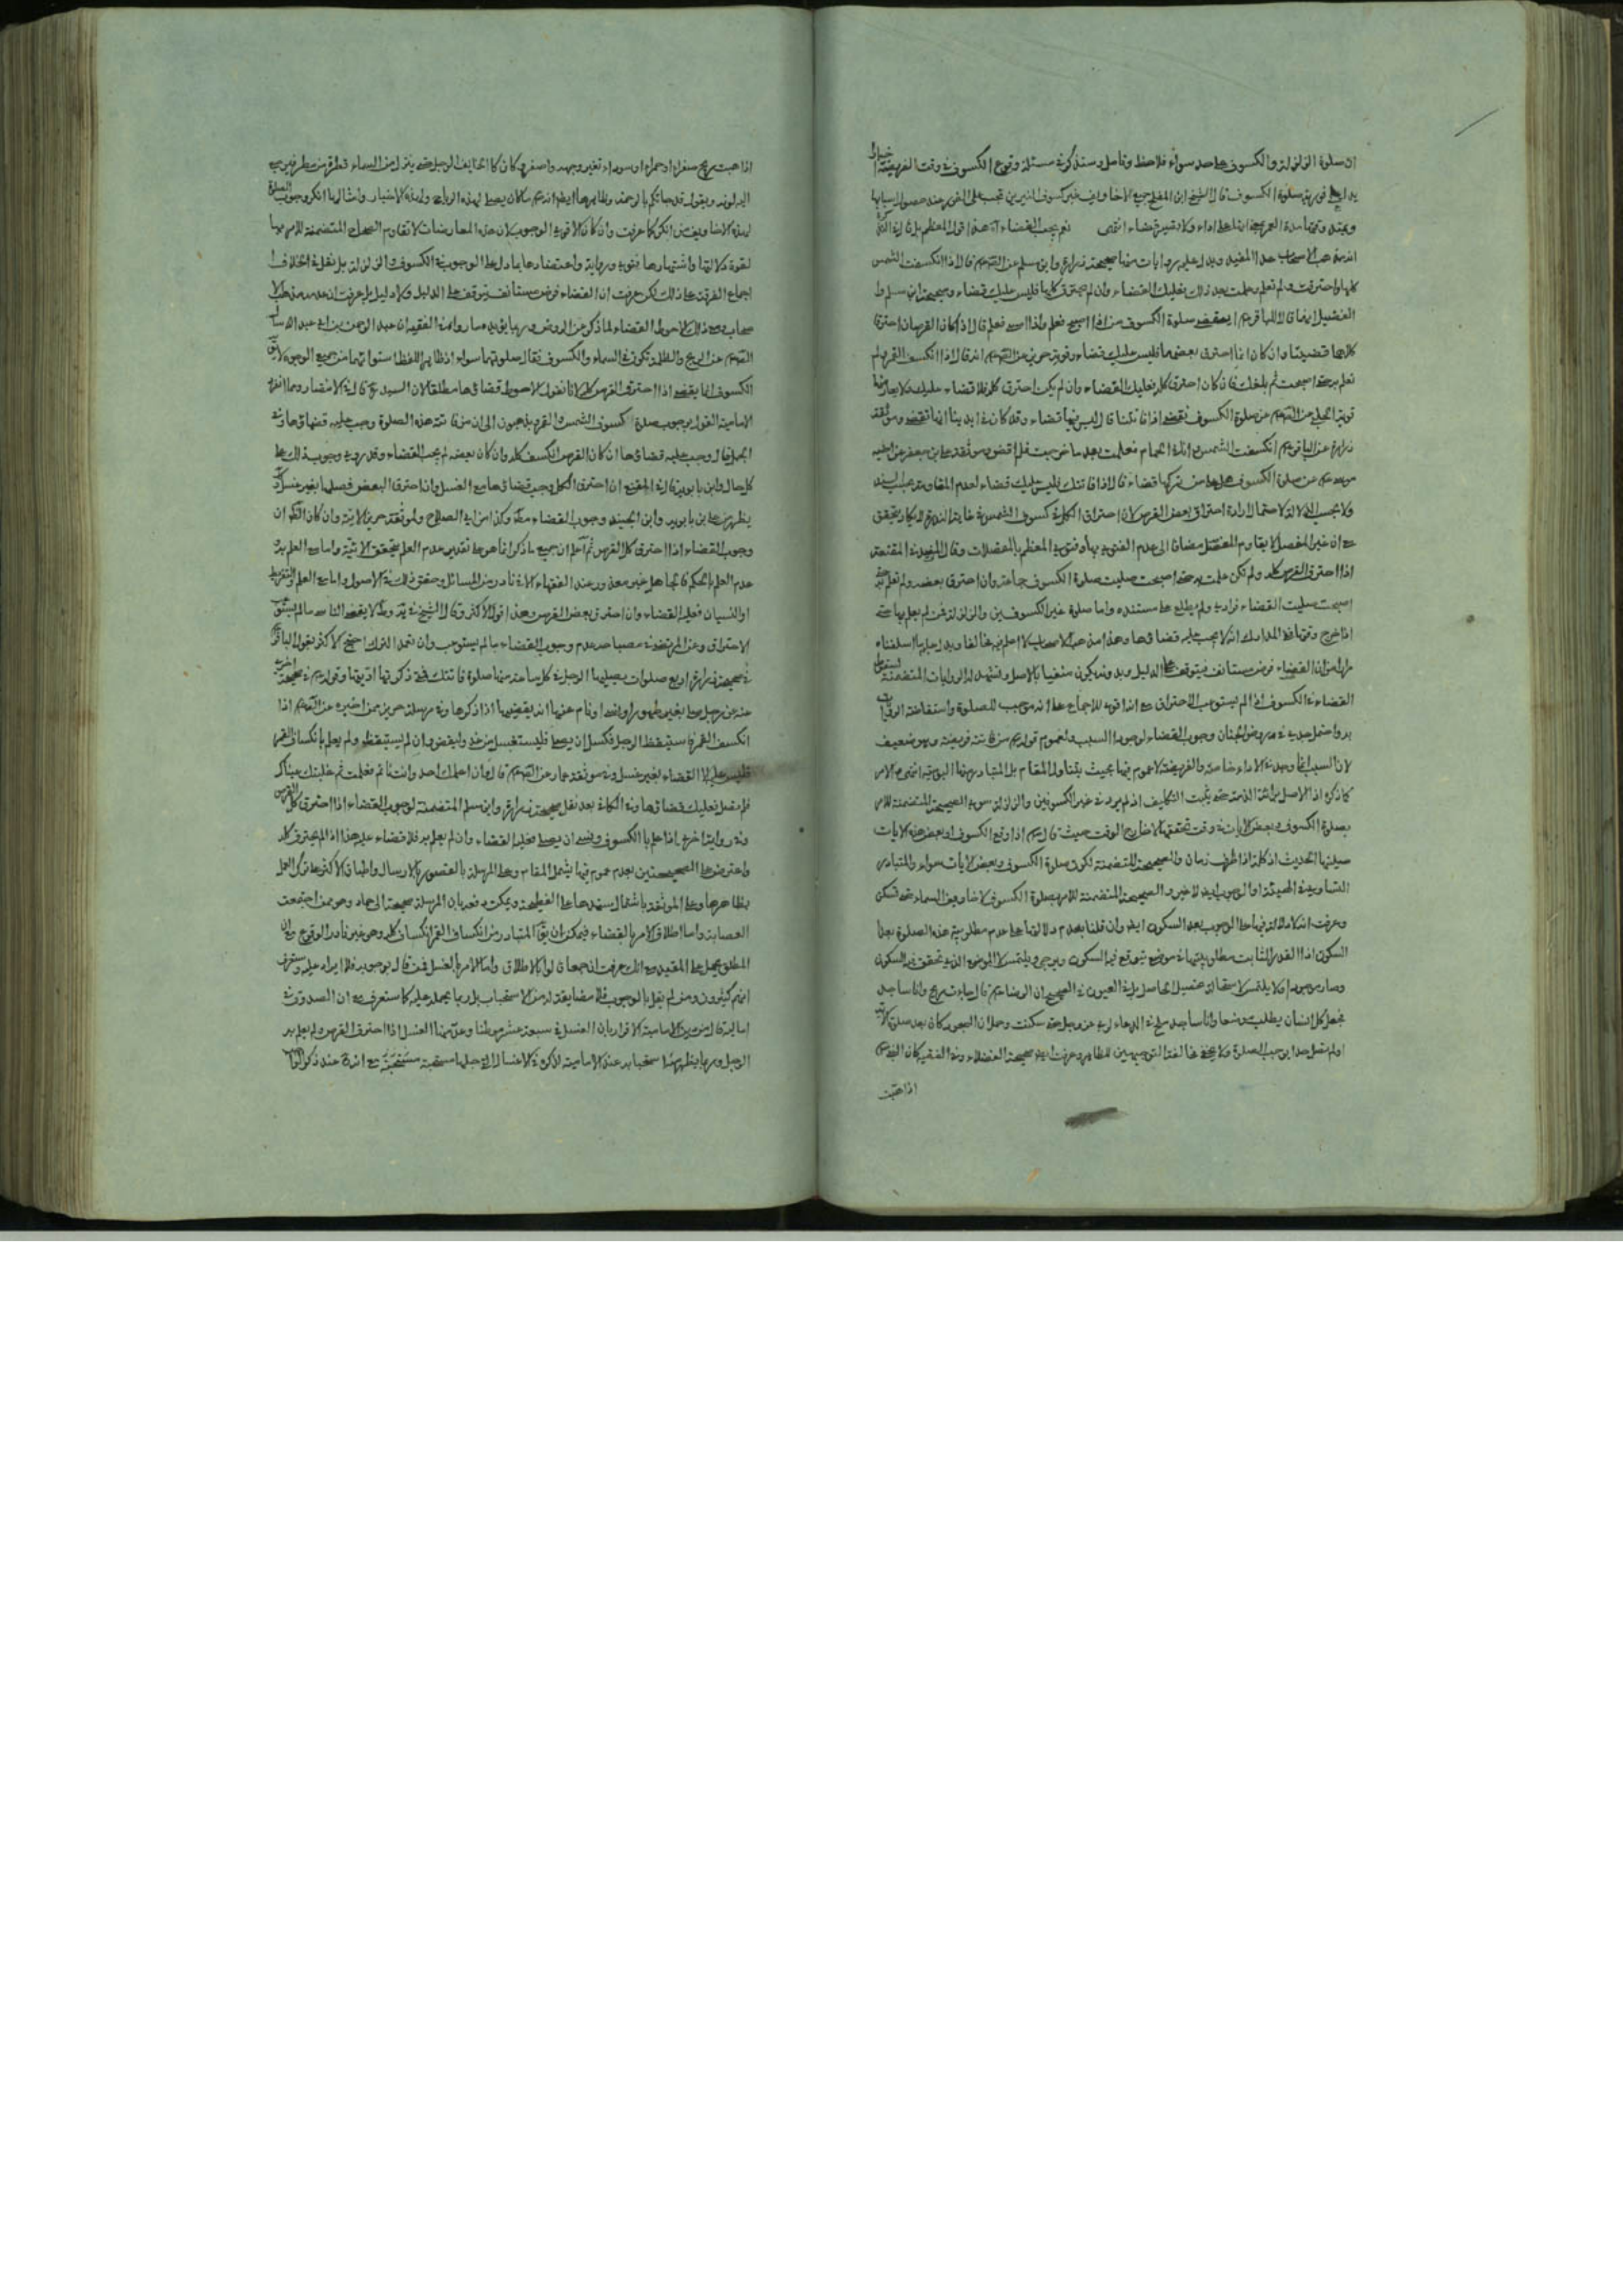 ان صلوة الزلزلة والكسوف على حد سواء فلاحظ وتامل وسنذكر في مسئلة وقوع الكسوف في وقت الفريضة
صلوة الكسوف قال الشيخ جميع الاخاويف غير كسوف النيرين تجب على الفور عند حصول اسبابها
ويمتد وقتها مدة العمر اداء ولا تصير قضاء انتهى نعم يجب القضاء
المفيد ويدل عليه روايات منها صحيحة زرارة وابن مسلم عن قال اذا انكسفت الشمس
كلها واحترقت ولم تعلم وعلمت بعد ذلك فعليك القضاء وان لم تحترق كلها فليس عليك قضاء وصحيحة ابن مسلم و
الفضيل انهما قالا للباقر ايقضي صلوة الكسوف من اذا اصبح فعلم واذا امسى فعلم قال اذا كان القرصان احترقا
كلاهما قضيتها وان كان انما احترق بعضهما فليس عليك قضاء وقوية حريز عن انه قال اذا انكسف القمر ولم
تعلم به حتى اصبحت ثم بلغك فان كان احترق كله فعليك القضاء وان لم يكن احترق كله فلا قضاء عليك ولا يعارضها
قوية الحلبي عن عن صلوة الكسوف نقضي اذا فاتتنا قال ليس فيها قضاء وقد كان في ايدينا انها تقضى وموثقة
زرارة عن الباقر انكسفت الشمس وانا في الحمام فعلمت بعد ما خرجت فلم اقض وموثقة علي بن جعفر عن اخيه
عن صلوة الكسوف هل على من تركها قضاء قال اذا فاتتك فليس عليك قضاء لعدم المقاومة بحسب السند
ولا بحسب الدلالة لاحتمال ارادة احتراق بعض القرص لان احتراق الكل في كسوف الشمس في غاية الندرة لا يكاد يتحقق
مع ان غير المفصل لا يقاوم المفصل مضافا الى عدم الفتوى بها وفتوى المعظم بالمفصلات وقال المفيد في المقنعة
اذا احترق القرص كله ولم تكن علمت به حتى اصبحت صليت صلوة الكسوف جماعة وان احترق بعضه ولم تعلم به حتى
اصبحت صليت القضاء فرادى ولم يطلع على مستنده واما صلوة غير الكسوفين والزلزلة فمن لم يعلم بها حتى
اذا خرج وقتها ففي المدارك انه لا يجب عليه قضاؤها وهذا مذهب الاصحاب لا اعلم فيه مخالفا ويدل عليه ما اسلفناه
مرارا من ان القضاء فرض مستانف فيتوقف على الدليل وبدونه يكون منفيا بالاصل ويشهد له الروايات المتضمنة لسقوط
القضاء في الكسوف اذا لم يستوعب الاحتراق مع انه اقوى للاجماع على انه موجب للصلوة واستفاضة الروايات
به واحتمل جدي في روض الجنان وجوب القضاء لوجود السبب ولعموم قوله من فاتته فريضة وهو ضعيف
لان السبب انما وجد في الاداء خاصة والفريضة لا عموم فيها بحيث يتناول المقام بل المتبادر منها اليومية انتهى والامر
كما ذكره اذ الاصل براءة الذمة حتى يثبت التكليف اذ لم يرد في غير الكسوفين والزلزلة سوى الصحيحة المتضمنة للامر
بصلوة الكسوف وبعض الايات في وقت تحققها لا خارج الوقت حيث قال اذا وقع الكسوف او بعض هذه الايات
صليتها الحديث اذ كلمة اذا ظرف زمان والصحيحة المتضمنة لكون صلوة الكسوف وبعض الايات سواء والمتبادر
التساوي في الهيئة او الوجوب ايضا لا غير والصحيحة المتضمنة للامر بصلوة الكسوف لاخاويف السماء حتى تسكن
وعرفت انه لا دلالة فيها على الوجوب بعد السكون ايضا وان قلنا بعدم دلالتها على عدم مطلوبية هذه الصلوة بعد
السكون اذ القدر الثابت مطلوبيتها في موضع يتوقع فيه السكون ويرجى ويلتمس لا الموضع الذي تحقق فيه السكون
وصار موجودا ولا يلتمس لاستحالة تحصيل الحاصل بل في العيون في الصحيح ان الرضا قال جاءت ريح وانا ساجد
فجعل كل انسان يطلب موضعا وانا ساجد ملح في الدعاء لربي عز وجل حتى سكنت وحمل ان السجود كان بعد صلوة
اولم نقل حد ايوجب الصلوة ولا يخفى مخالفة التوجيهين للظاهر وعرفت ايضا صحيحة الفضلاء وفي الفقيه كان النبي
اذا هبت
اذا هبت ريح صفراء او حمراء او سوداء تغير وجهه واصفر وكان كالخائف الوجل حتى ينزل من السماء قطرة من مطر فيرجع
اليه لونه ويقول قد جاءتكم بالرحمة وظاهرها ايضا انه ما كان يصلي لهذه الرياح ولهذه الاخبار وامثالها انكر وجوب الصلوة
لهذه الاخاويف من انكر كما عرفت وان كان الاقوى الوجوب لان هذه المعارضات لا تقاوم الصحاح المتضمنة للامر بها
لقوة دلالتها واشتهارها فتوى ورواية واعتضادها بما دل على الوجوب في الكسوف والزلزلة بل نقل في الخلاف
اجماع الفرقة على ذلك لكن عرفت ان القضاء فرض مستانف يتوقف على الدليل ولا دليل بل عرفت ان عدمه مذهب الا
صحاب ومع ذلك الاحوط القضاء لما ذكر عن الروض وربما يؤيده ما رواه في الفقيه ان عبد الرحمن بن ابي عبد الله سال
عن الريح والظلمة تكون في السماء والكسوف فقال صلوتهما سواء اذ ظاهر اللفظ استوائهما من جميع الوجوه
الكسوف انما يقضى اذا احترق القرص كله لانا نقول الاحوط قضاؤها مطلقا لان السيد ره قال في الانتصار ومما انفردت
الامامية القول بوجوب صلوة كسوف الشمس والقمر ويذهبون الى ان من فاتته هذه الصلوة وجب عليه قضاؤها وفي
الجمل قال وجب عليه قضاؤها ان كان القرص انكسف كله وان كان بعضه لم يجب القضاء وقد روي وجوب ذلك على
كل حال وابن بابويه قال في المقنع ان احترق الكل وجب قضاؤها مع الغسل وان احترق البعض فصلها بغير غسل
يظهر من علي بن بابويه وابن الجنيد وجوب القضاء مطلقا وكذا من ابي الصلاح ولموثقة حريز الاتية وان كان الاظهر ان
وجوب القضاء اذا احترق كل القرص ثم اعلم ان جميع ما ذكر انما هو على تقدير عدم العلم بتحقق الاية واما مع العلم به و
عدم العلم بالحكم فالجاهل غير معذور عند الفقهاء الا في نادر من المسائل وحقق ذلك في الاصول واما مع العلم والتفريط
او النسيان فعليه القضاء وان احترق بعض القرص وهذا قول الاكثر وقال الشيخ في لا يقضي الناسي ما لم يستوعب
الاحتراق وعن المرتضى في مصباحه عدم وجوب القضاء ما لم يستوعب وان تعمد الترك احتج الاكثر بقول الباقر
في صحيحة زرارة اربع صلوات يصليها الرجل في كل ساعة منها صلوة فاتتك فمتى ذكرتها اديتها وقوله في صحيحة اخرى
عنه عن رجل صلى بغير طهور او نسي او نام عنها انه يقضيها اذا ذكرها وفي مرسلة حريز عمن اخبره عن اذا
انكسف القمر فاستيقظ الرجل فكسل ان يصلي فليغتسل من غد وليقض وان لم يستيقظ ولم يعلم بانكساف القمر
فليس عليه الا القضاء بغير غسل وفي موثقة عمار عن قال وان اعلمك احد وانت نائم فعلمت ثم غلبتك عيناك
فلم تصل فعليك قضاؤها وفي الكافي بعد نقل صحيحة زرارة وابن مسلم المتضمنة لوجوب القضاء اذا احترق كل القرص
وفي رواية اخرى اذا علم بالكسوف ونسي ان يصلي فعليه القضاء وان لم يعلم به فلا قضاء عليه هذا اذا لم يحترق كله
واعترض على الصحيحتين بعدم عموم فيها يشمل المقام وعلى المرسلة بالقصور بالارسال واطباق الاكثر على ترك العمل
بظاهرها وعلى الموثقة باشتمال سندها على الفطحية ويمكن دفعه بان المرسلة صحيحة الى حماد وهو ممن اجتمعت
العصابة واما اطلاق الامر بالقضاء فيمكن ان يقال المتبادر من انكساف القمر انكساف كله وهو غير نادر الوقوع وان
المطلق يحمل على المقيد مع انك عرفت ان جمعا قالوا بالاطلاق واما الامر بالغسل فمن قال بوجوبه فلا ايراد عليه وستعرف
انهم كثيرون ومن لم يقل بالوجوب فلا مضايقة له من الاستحباب بل ربما يحمله عليه كما ستعرف مع ان الصدوق في
اماليه قال من دين الامامية الاقرار بان الغسل في سبعة عشر موطنا وعد منها الغسل اذا احترق القرص ولم يعلم به
الرجل وربما يظهر منه استحبابه عند الامامية لذكره في الاغسال التي جلها مستحبة مع انه عند ذكر